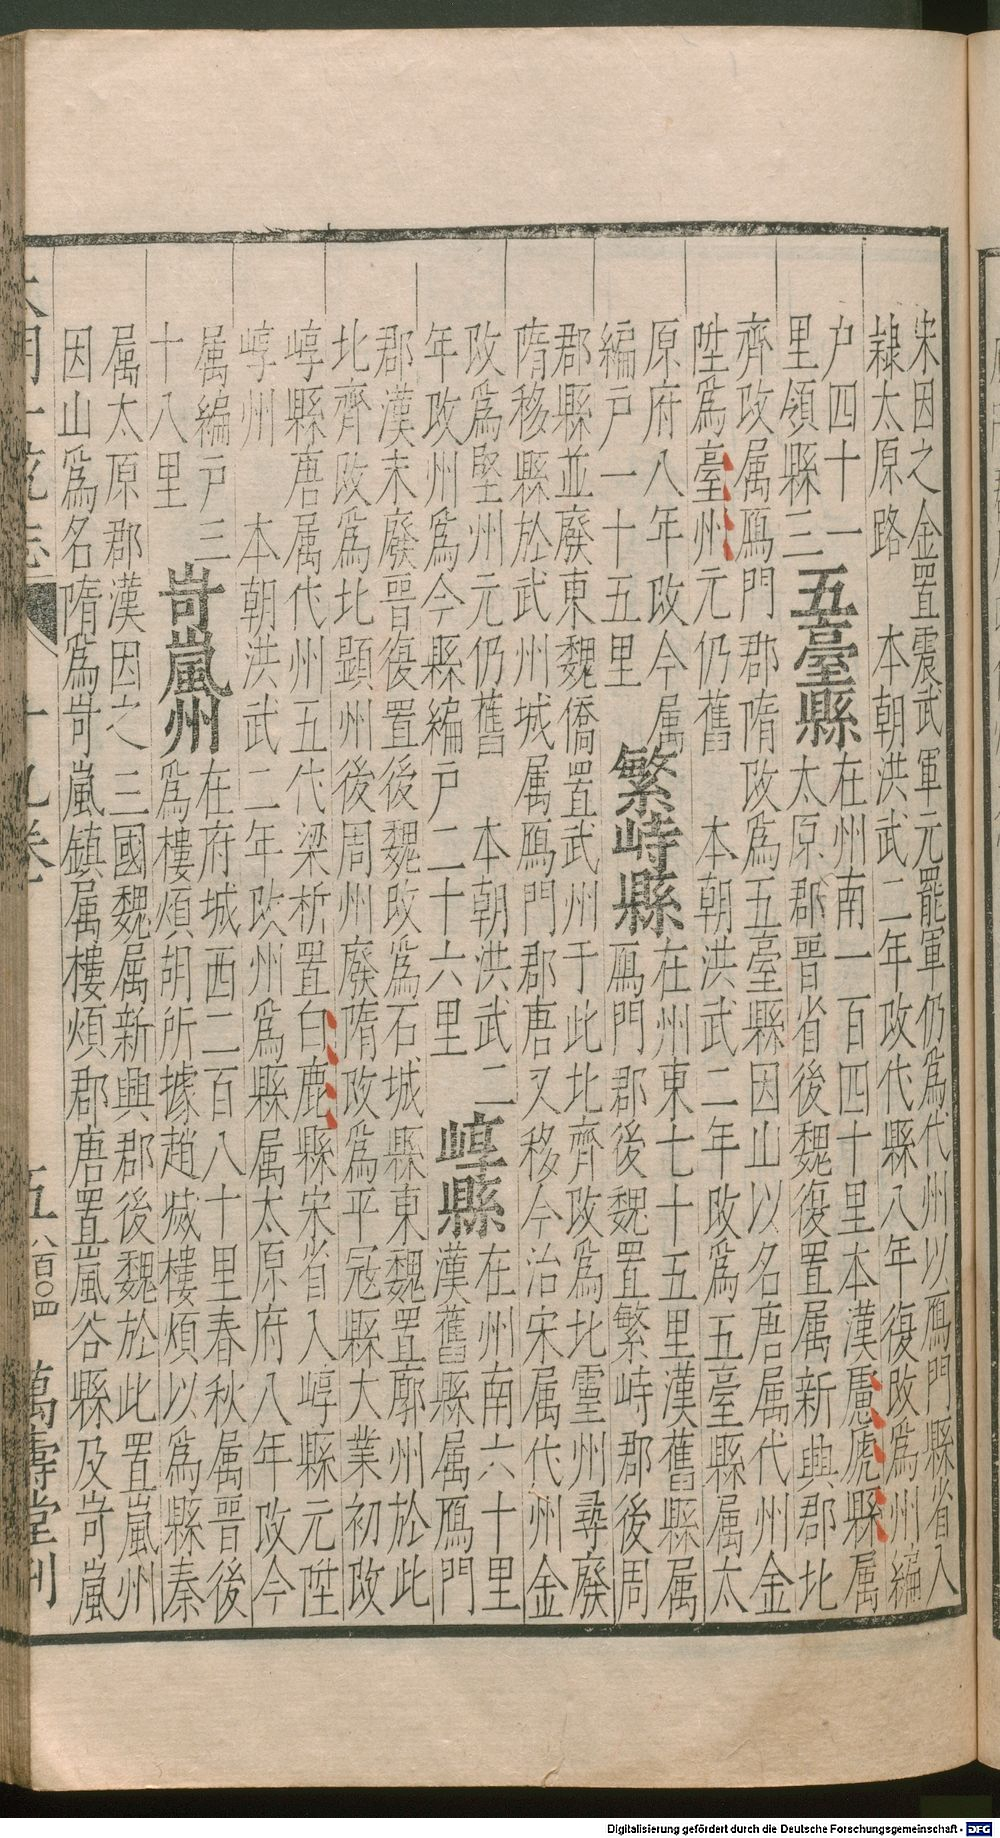 宋因之金置震武軍元罷軍仍爲代州以鴈門縣省入
隷太原路 本朝洪武二年改代縣八年復改爲州編
户四十一
里領縣三
五臺縣
在州南一百四十里本漢慮虒縣属
太原郡晉省後魏復置属新興郡北
齊改属鴈門郡隋改爲五臺縣因山以名唐属代州金
陞爲臺州元仍舊 本朝洪武二年改爲五臺縣属太
原府八年改今属
編户一十五里
繁峙縣
在州東七十五里漢舊縣属
鴈門郡後魏置繁峙郡後周
郡縣並廢東魏僑置武州于此北齊改爲北靈州尋廢
隋移縣於武州城属鴈門郡唐又移今治宋属代州金
改爲堅州元仍舊 本朝洪武二
年改州爲今縣編户二十六里
崞縣
在州南六十里
漢舊縣属鴈門
郡漢末廢晉復置後魏改爲石城縣東魏置廓州於此
北齊改爲北顕州後周州廢隋改爲平冦縣大業初改
崞縣唐属代州五代梁析置白鹿縣宋省入崞縣元陞
崞州 本朝洪武二年改州爲縣属太原府八年改今
属編户三
十八里
岢嵐州
在府城西二百八十里春秋属晉後
爲樓煩胡所據趙㓕樓煩以爲縣秦
属太原郡漢因之三國魏属新興郡後魏於此置嵐州
因山爲名隋爲岢嵐鎮属樓煩郡唐置嵐谷縣及岢嵐
大明一統志 十九卷 五 六百〇四 萬壽堂刊
Digitalisierung gefördert durch die Deutsche Forschungsgemeinschaft - DFG